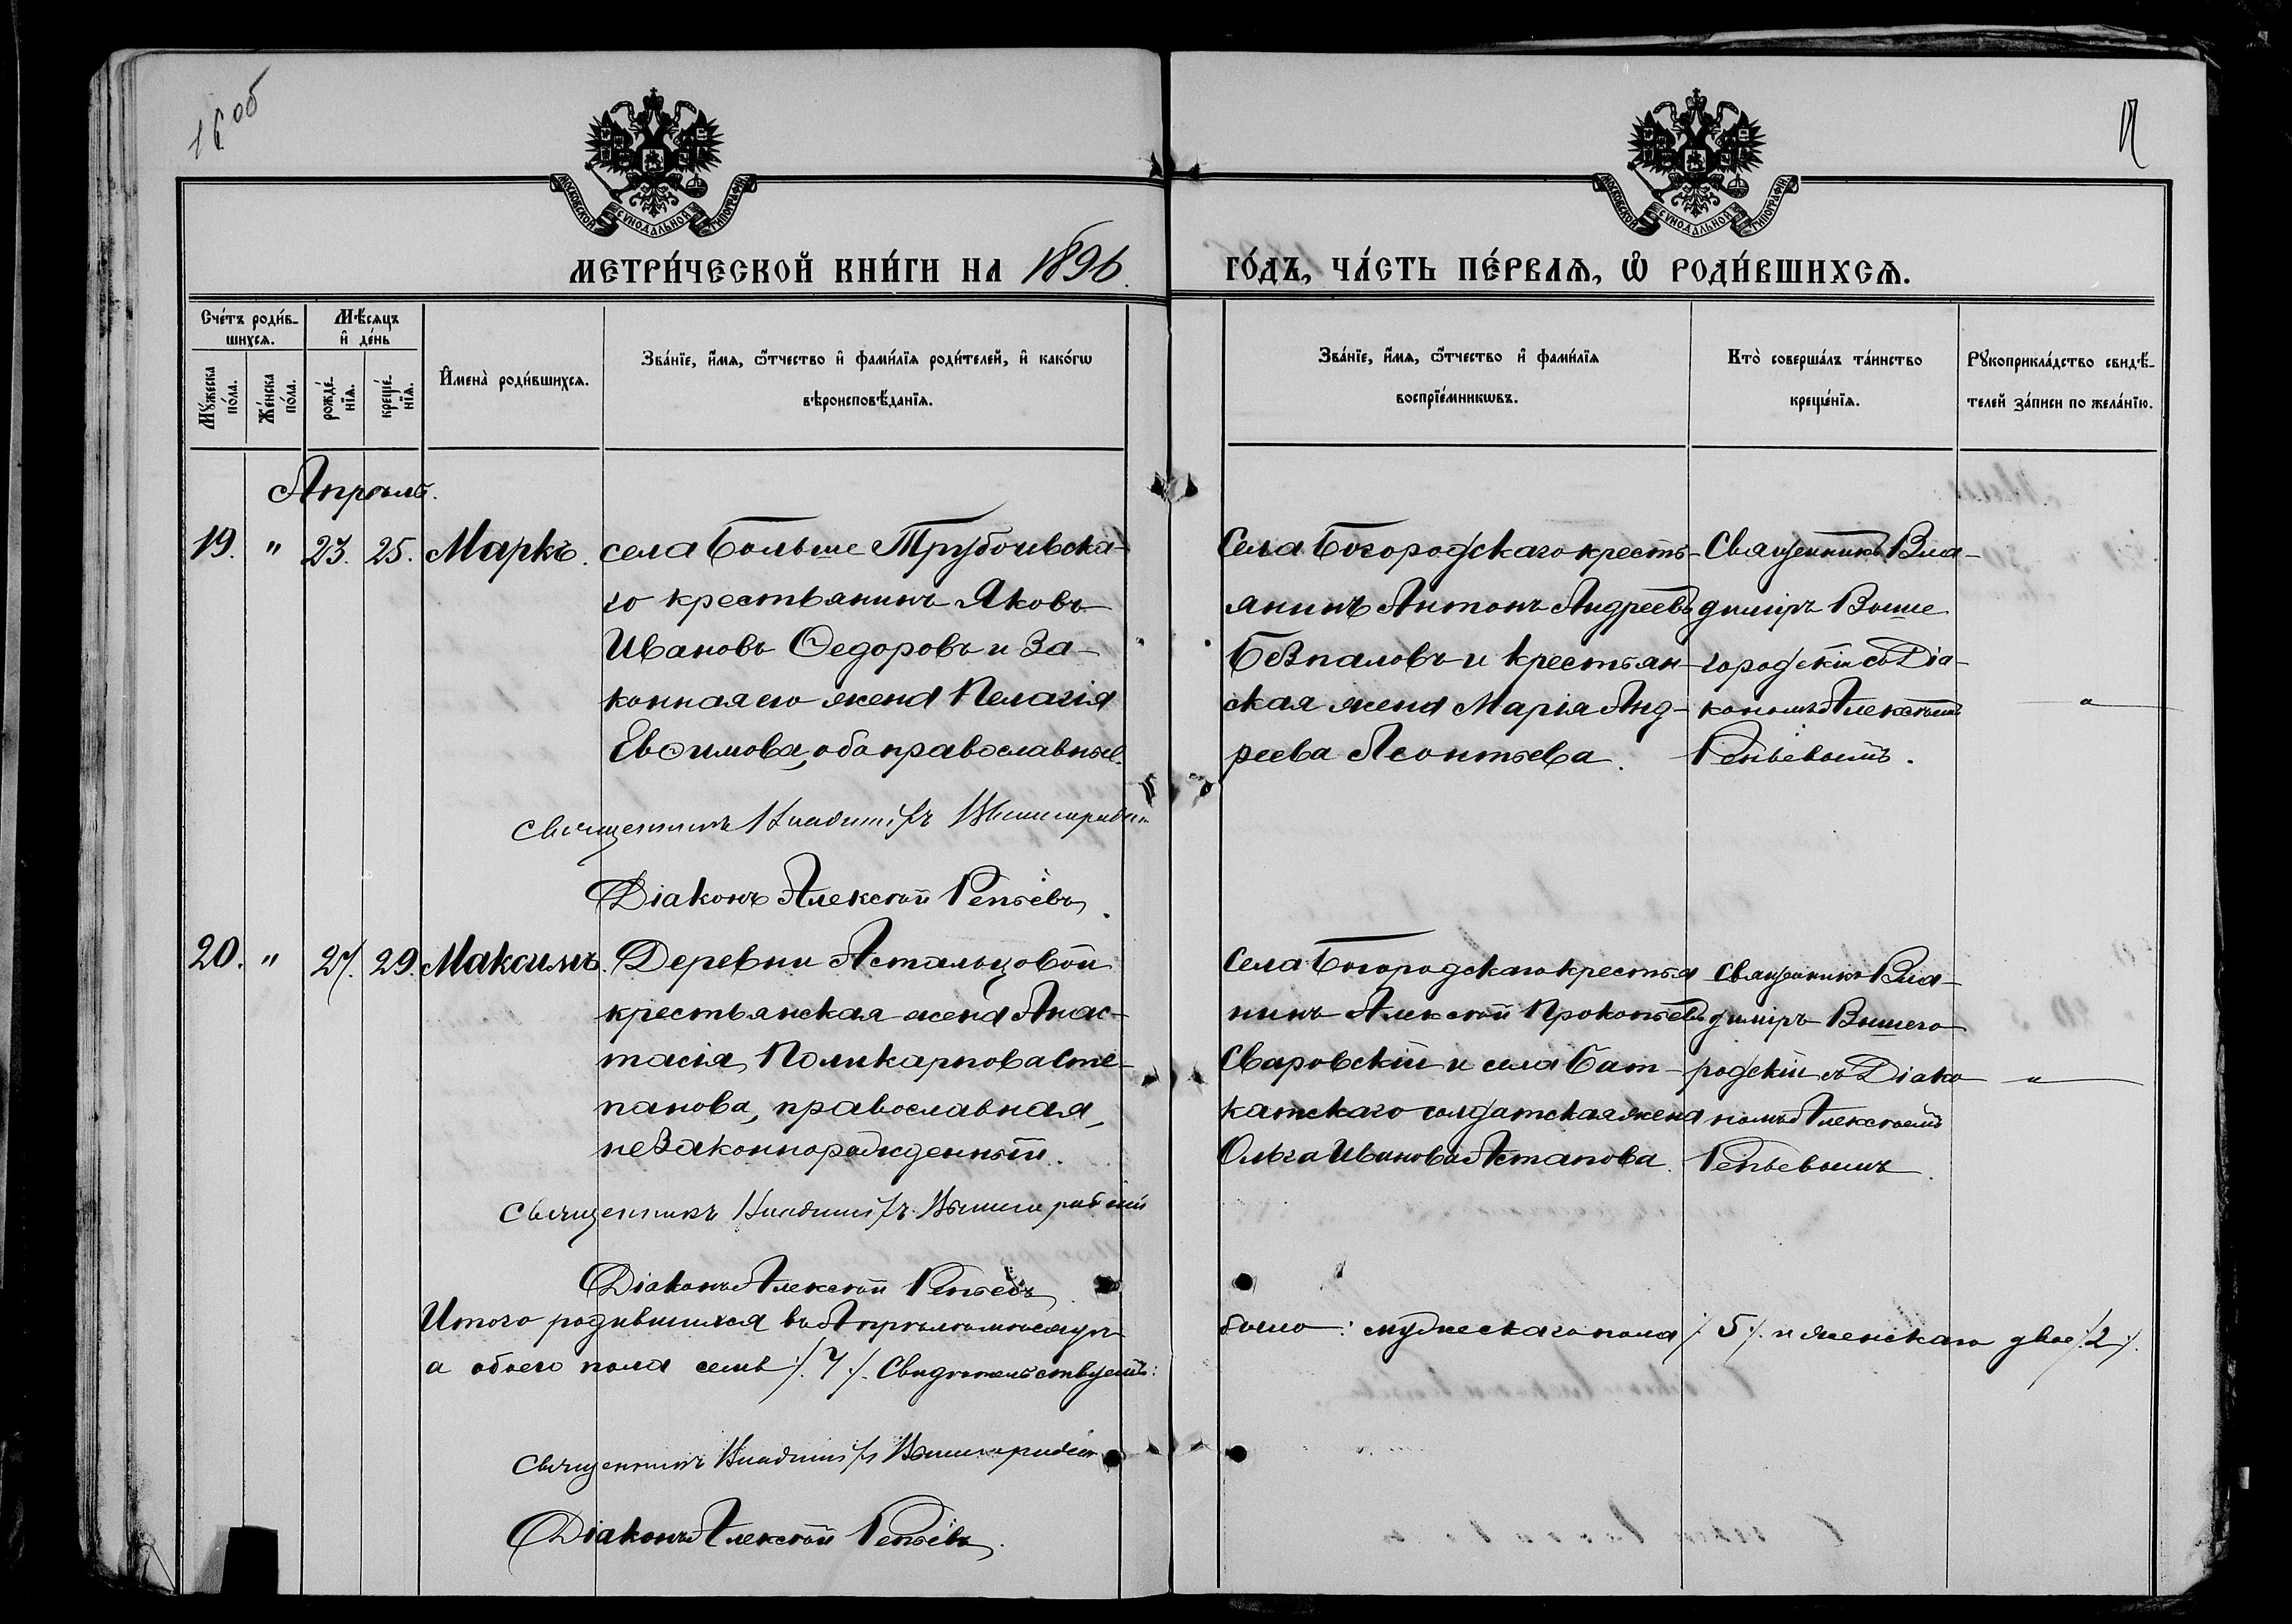 16об
17
МОСКОВСКОЙ СѴНОДАЛЬНОЙ ТИПОГРАФІИ
МОСКОВСКОЙ СѴНОДАЛЬНОЙ ТИПОГРАФІИ
МЕТРИ́ЧЕСКОЙ КНИ́ГИ НА 1896.
ГО́ДЪ, ЧА́СТЬ ПЕ́РВАѦ, Ѡ҆ РОДИ́ВШИХСѦ.
Сче́тъ роди́в-
шихсѧ.
Мѣ́сѧцъ
и҆ де́нь
Мꙋ́жеска
по́ла.
Же́нска
по́ла.
рожде́-
нїѧ.
креще́-
нїѧ.
И҆мена̀ роди́вшихсѧ.
Зва́нїе, и҆́мѧ, ѻ҆́тчество и҆ фами́лїѧ роди́телей, и҆ како́гѡ
вѣроисповѣ́данїѧ.
Зва́нїе, и҆́мѧ, ѻ҆́тчество и҆ фами́лїѧ
воспрїе́мникѡвъ.
Кто̀ соверша́лъ та́инство
креще́нїѧ.
Рꙋкоприкла́дство свидѣ́-
телей за́писи по жела́нїю.
Апрѣль.
19. " 23. 25. Маркъ.
села Больше Трубочевска-
го крестьянинъ Яковъ
Ивановъ Ѳедоровъ и за-
конная его жена Пелагія
Евѳимова, оба православные.
Села Богородскаго кресть-
янинъ Антонъ Андреевъ
Безпаловъ и крестьян-
ская жена Марія Анд-
реева Леонтьева.
Священникъ Вла-
диміръ Выше
городскій съ Діа-
кономъ Алексѣемъ
Репьевымъ.
"
Священникъ Владиміръ Вышегородскій
Діаконъ Алексѣй Репьевъ.
20. " 27. 29. Максимъ.
Деревни Астальцовой
крестьянская жена Анас-
тасія Поликарпова Сте-
панова, православная,
незаконнорожденный.
Села Богородскаго крестья
нинъ Алексѣй Прокопьевъ
Сваровскій и села Бат-
катскаго солдатская жена
Ольга Иванова Астапова.
Священникъ Вла-
диміръ Вышего
родскій съ Діако
номъ Алексѣемъ
Репьевымъ.
"
Священникъ Владиміръ Вышегородскій
Діаконъ Алексѣй Репьевъ.
Итого родившихся въ Апрѣлѣ мѣсяцѣ
было: мужескаго пола /. 5 /. и женскаго двое /. 2 /.
а обоего пола семь /. 7 /. Свидѣтельствуемъ:
Священникъ Владиміръ Вышегородскій
Діаконъ Алексѣй Репьевъ.